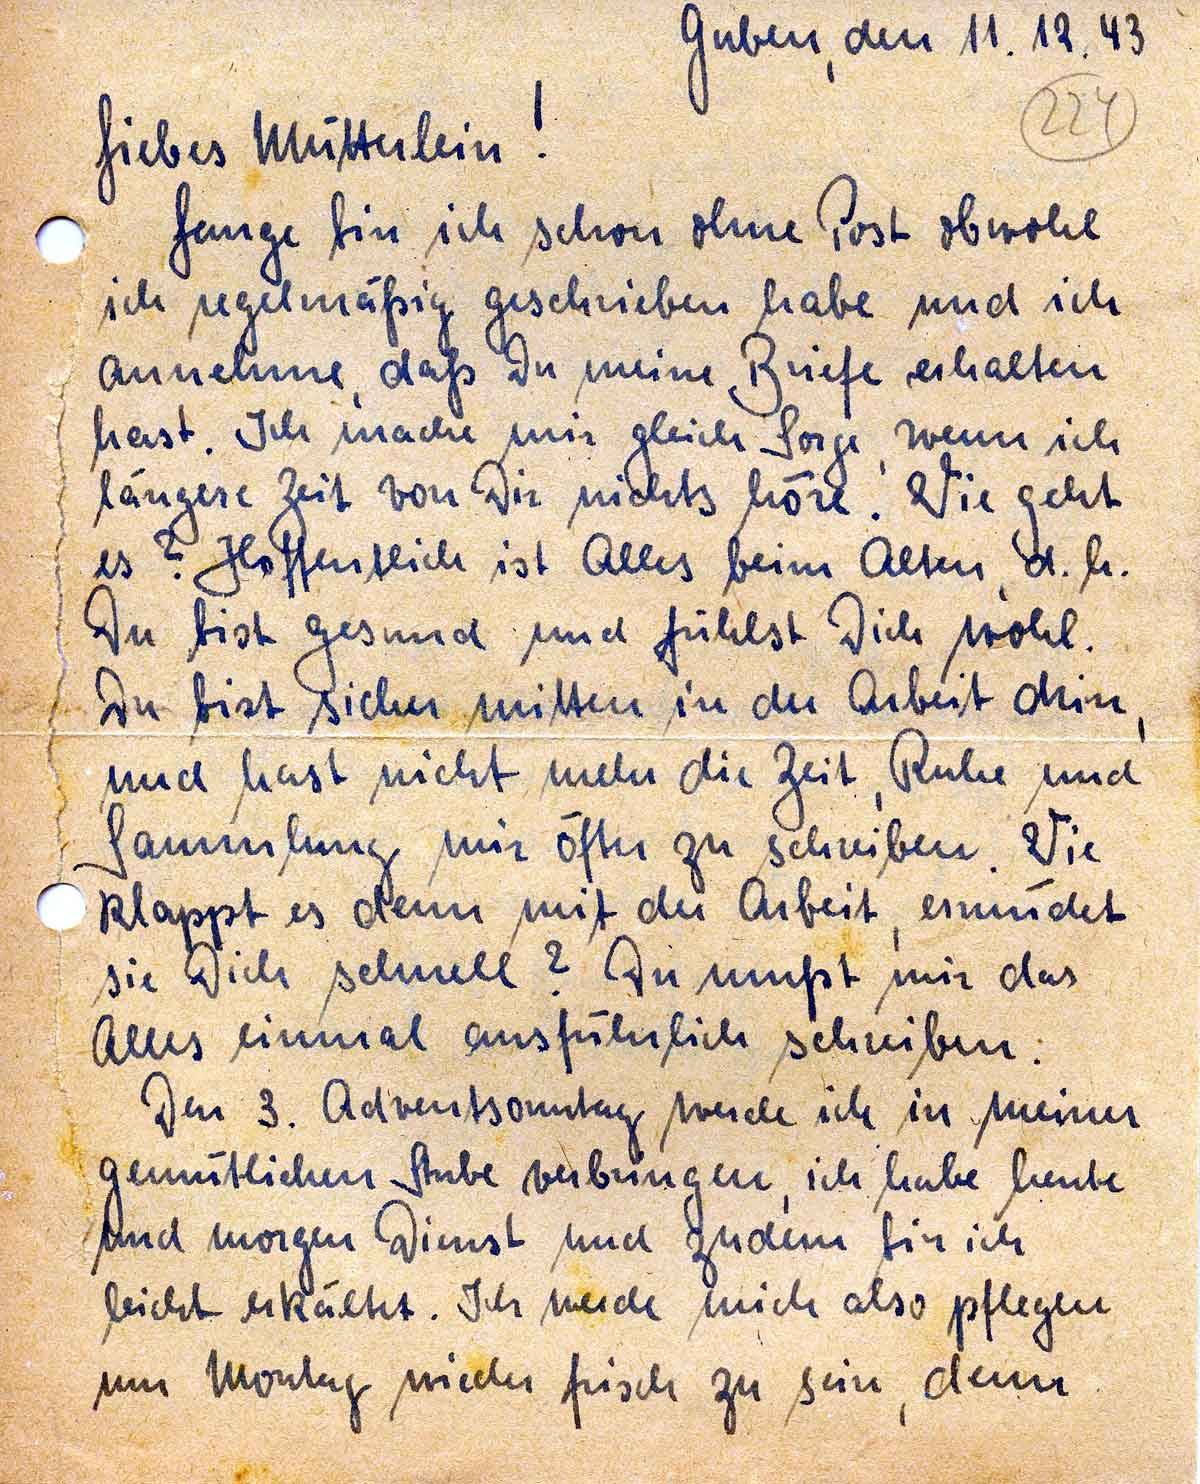 Guben, den 11. 12. 43
227
Liebes Mutterlein!
Lange bin ich schon ohne Post obwohl
ich regelmäßig geschrieben habe und ich
annehme, daß Du meine Briefe erhalten
hast. Ich mache mir gleich Sorge, wenn ich
längere Zeit von Dir nichts höre. Wie geht
es? Hoffentlich ist Alles beim Alten, d. h.
Du bist gesund und fühlst Dich wohl.
Du bist sicher mitten in der Arbeit drin,
und hast nicht mehr die Zeit, Ruhe und
Sammlung mir öfter zu schreiben. Wie
klappt es denn mit der Arbeit, ermüdet
sie Dich schnell? Du mußt mir das
Alles einmal ausführlich schreiben.
Den 3. Adventsonntag werde ich in meiner
gemütlichen Stube verbringen, ich habe heute
und morgen Dienst und zudem bin ich
leicht erkältet. Ich werde mich also pflegen
um Montag wieder frisch zu sein, denn